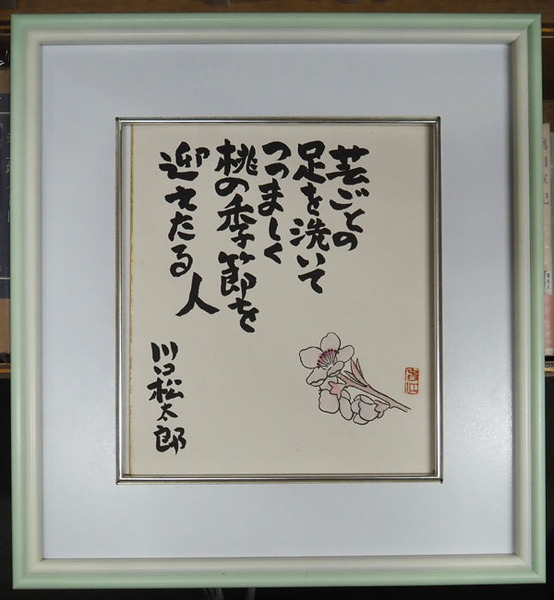 芸ごとの
足を洗いて
つつましく
桃の季節を
迎えたる人
川口松太郎